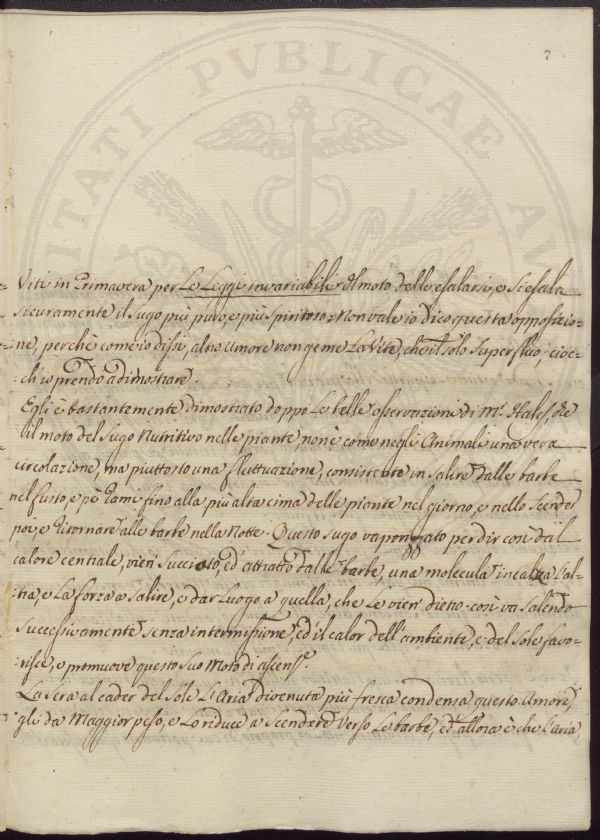 7
ITATI PVBLICAE AV
Viti in Primavera per Le Leggi invariabili del moto dell'esalarsi, e si esala
sicuramente il sugo più puro, e più spiritoso = Non vale io dico questa opposizio=
=ne, perchè come io dissi, altro Umore non geme La Vite, che il solo superfluo; cioc=
=ch'io prendo a dimostrare.
Egli è bastantemente dimostrato doppo Le belle osservazioni di Mr. Hales, che
il moto del sugo Nutritivo nelle piante, non è come negli Animali una vera
circolazione, ma piuttosto una fluttuazione, consistente in salire dalle barbe
nel fusto, e pe' Rami fino alla più alta cima delle piante nel giorno, e nello scender
poi, e Ritornare alle barbe nella Notte. Questo sugo vaporizzato per dir così dal
calore centrale, vien succiato, ed attratto dalle barbe, una molecula incalza l'al=
=tra, e La forza a salire, e dar Luogo a quella, che Le vien dietro. così va salendo
successivamente senza intermissione, ed il calor dell'ambiente, e del sole favo=
=risce, e promuove questo suo Moto di
La sera al cader del sole L'Aria divenuta più fresca condensa questo Umore,
gli dà Maggior peso, e Lo riduce a scendere verso Le barbe, ed allora è che l'aria,